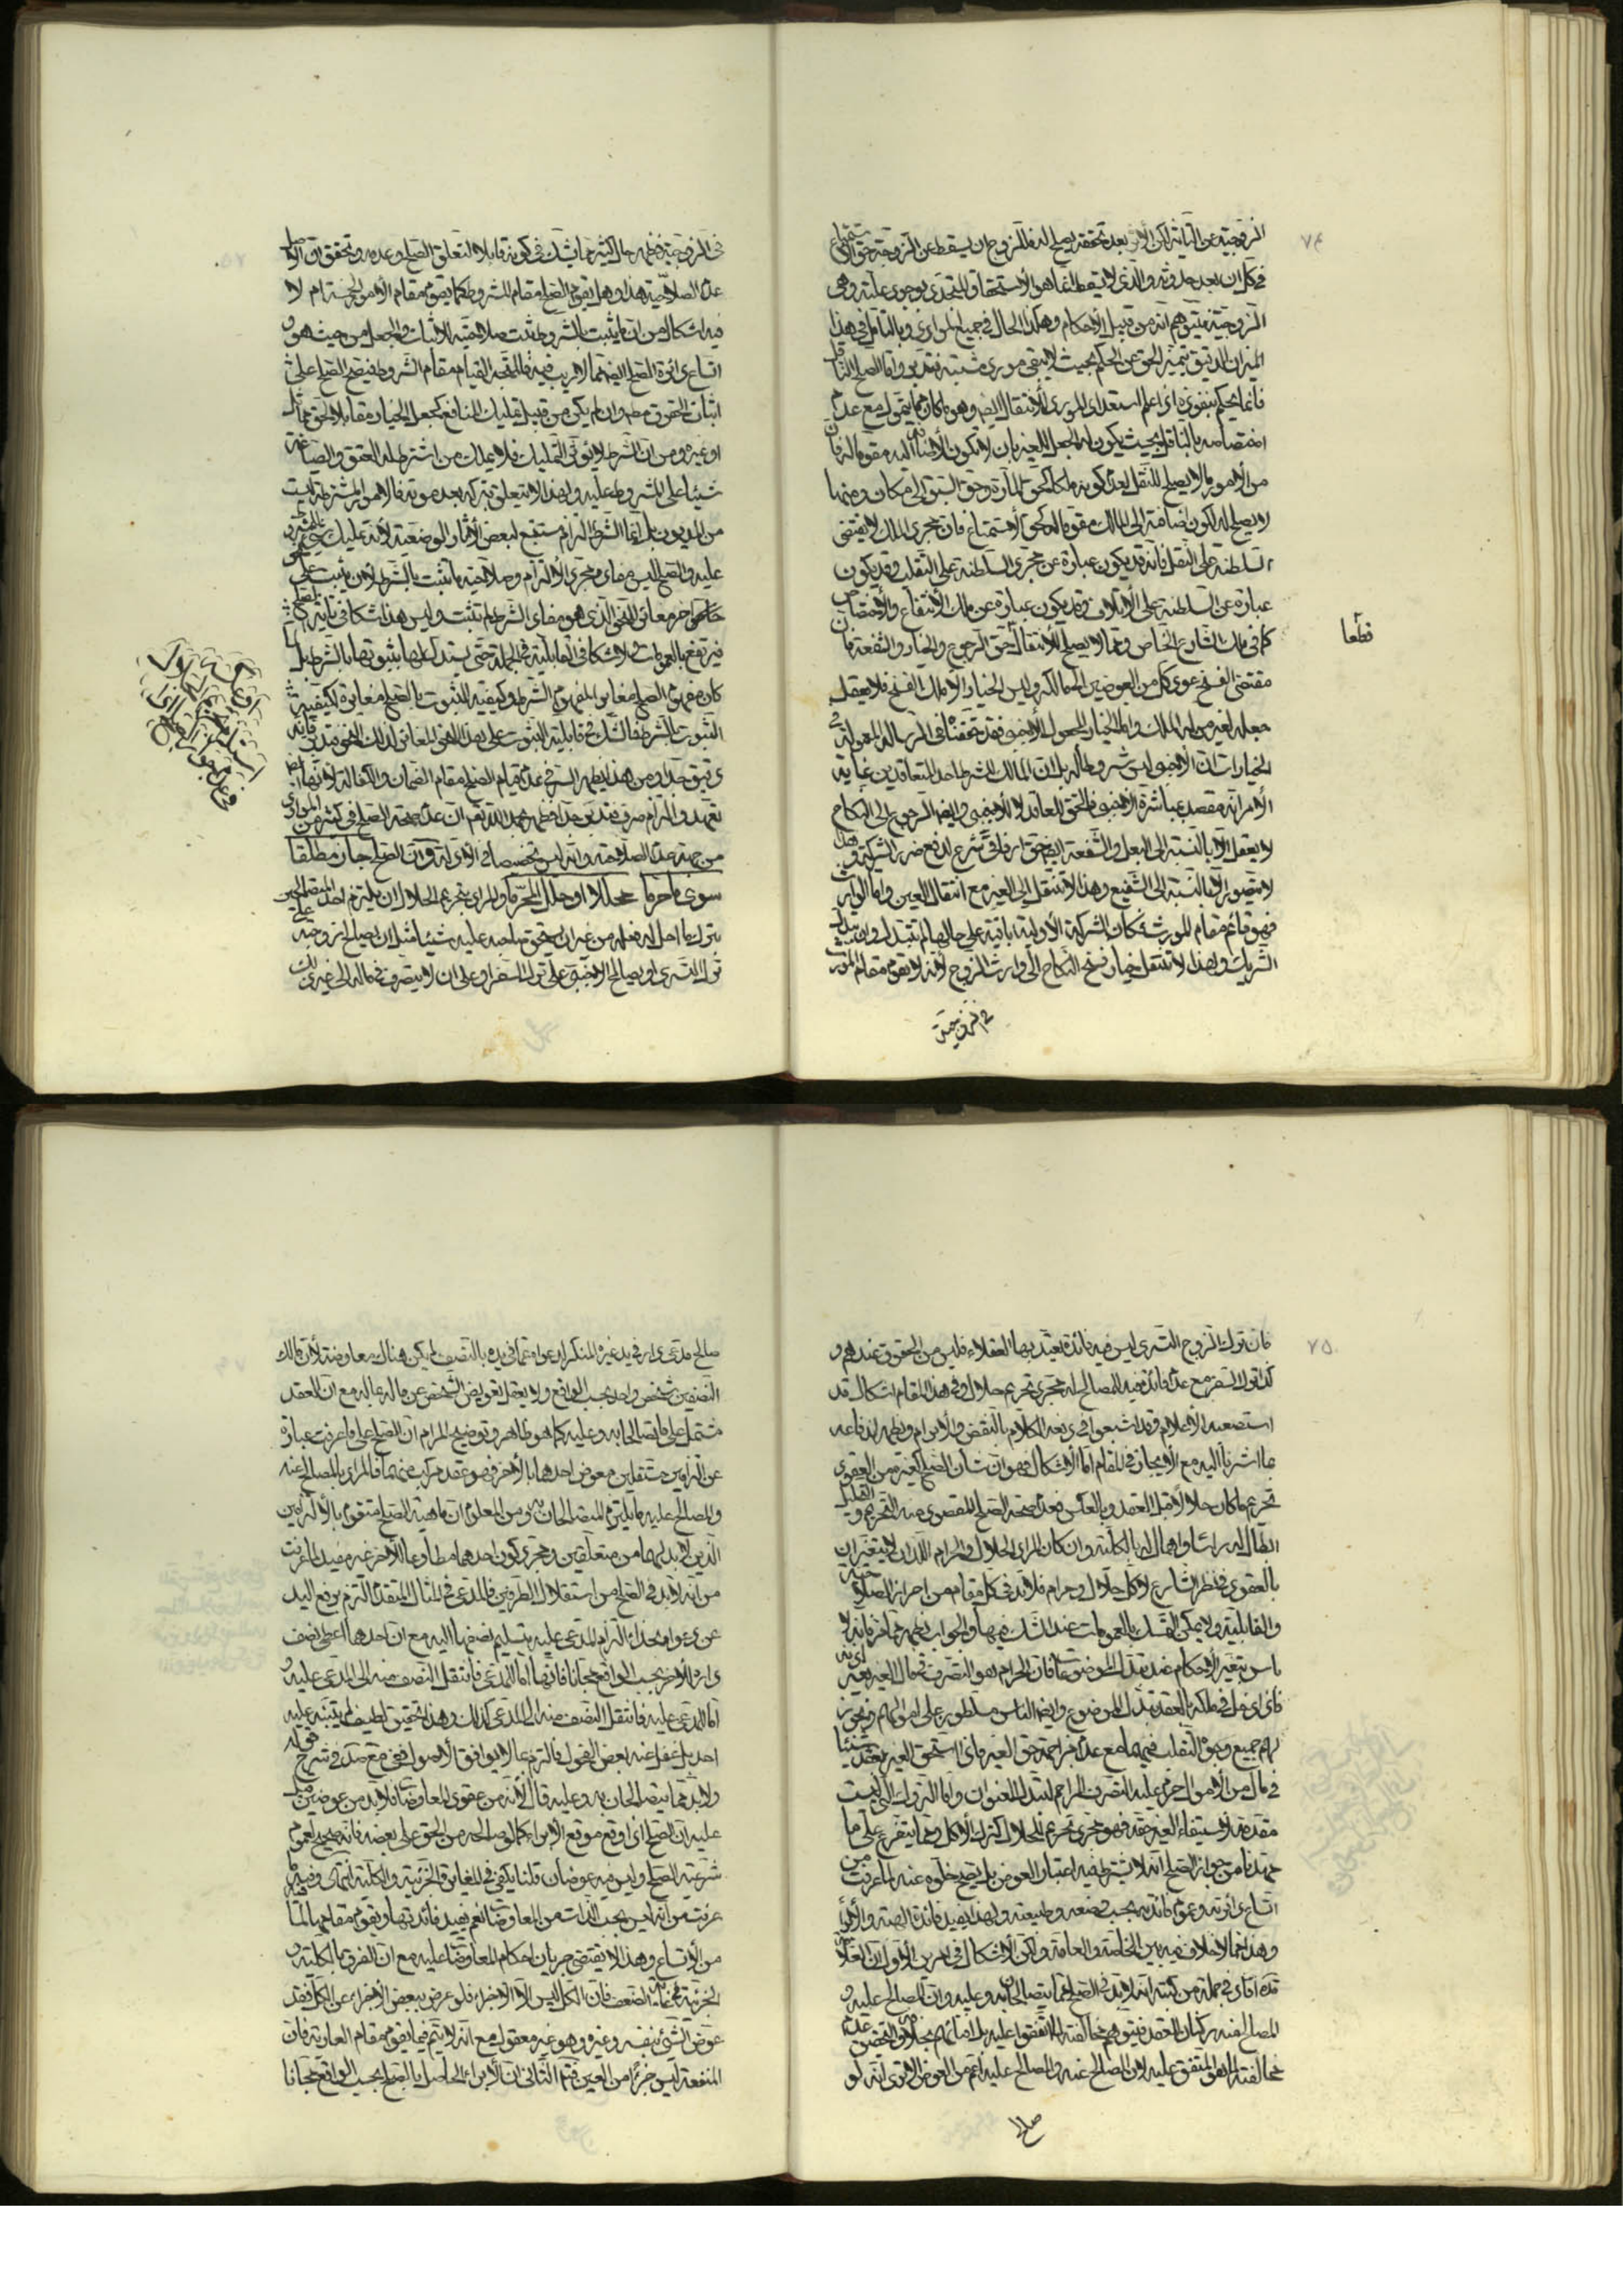 ٧٤
الزوجية عن البائنة لكن الأثر بعد تحققه يصلح له فللزوج ان يسقط عن الزوجة حق الاستمتاع
في كل ان بعد حدوثه والذي لا يسقط انما هو الاستحقاق المتجدد بوجود علته وهي
الزوجية فيتوهم انه من قبيل الأحكام وهكذا الحال في جميع الموارد وبالتأمل في هذا
الميزان الدقيق يتميز الحق عن الحكم بحيث لا يبقى مورد مشتبه فتدبر واما الصلح الناقل
فانما يحكم بنفوذه اذا علم استعداد المورد للأنتقال ايضا وهو ما كان مما يتمول مع عدم
اختصاصه بالناقل بحيث يكون له الجعل للغير بان لا تكون الاضافة اليه مقومة له فان
من الأمور ما لا يصلح للنقل لعدم كونه ملكا كحق المارة وحق السبق الى مكان ومنها
لا يصلح له لكون اضافته الى المالك مقومة له كحق الاستمتاع فان مجرد الملك لا يقتضي
السلطنة على النقل فانه قد يكون عبارة عن مجرد السلطنة على التقلب وقد يكون
عبارة عن السلطنة على الاتلاف وقد يكون عبارة عن ملك الانتفاع والاختصاص
كما في ملك الشارع الخاص ومما لا يصلح للانتقال حق الرجوع والخيار والشفعة فان
قطعا
مقتضى الفسخ عود كل من العوضين الى مالكه وليس الخيار الا ملك الفسخ فلا يعقل
جعله لغير من له الملك واما الخيار المجعول للأجنبي فقد تحققنا في الرسالة المعمولة في
الخيارات ان الأجنبي ليس شروطا له بل ان المالك المشترط احد المتعاقدين غاية
الأمر انه مقصد مباشرة الأجنبي فالحق للعاقد لا للأجنبي وايضا الرجوع الى النكاح
لا يعقل الا بالنسبة الى البعل والشفعة ايضا حق ارفاقي شرع لدفع ضرر الشركة
لا يتصور الا بالنسبة الى الشفيع وهذا لا تنتقل الى الغير مع انتقال العين واما الوارث
فهو قائم مقام المورث فكان الشركة الأولية باقية على حالها لم تتبدل وان تبدل
الشريك ولهذا لا تنتقل خيار فسخ النكاح الى وارث الزوج لأنه لا يقوم مقام المورث
في الزوجية
في الزوجية فظهر حال كثير مما يشك في كونه قابلا لتعلق الصلح وعدمه وتحقق ان الاصل
عدم الصلاحية هذا وهل يقوم الصلح مقام الشروط كما يقوم مقام الأمور الخمسة ام لا
فيه اشكال من ان ما يثبت بالشروط يثبت صلاحيته للاثبات والجعل من حيث هو و
اتساع دائرة الصلح ايضا مما لا ريب فيه فالمتجه القيام مقام الشروط فيصح الصلح على
اثبات الحقوق مطلقا وان لم يكن من قبيل تمليك المنافع كجعل الخيار مقابلا لحق مماثل
او غيره ومن ان الشرط لا يؤثر التمليك فلا يملك من اشترط له العتق والصياغة
شيئا على المشروط عليه ولهذا لا يتعلق بتركته بعد موته فالامور المشترطة ليست
من الديون بل انما الشرط التزام مستتبع لبعض الآثار الوضعية لا انه تمليك
عليه والصلح ليس مفاده مجرد الالتزام وصلاحية ما يثبت بالشرط لان يثبت على
فيرتفع بالعمومات فلا اشكال في القابلية في الجملة حتى يستدل لها بثبوتها بالشرط بل
كان مفهوم الصلح مغايرا لمفهوم الشرط وكيفية الثبوت بالصلح مغايرة لكيفية
الثبوت بالشرط فالشك في قابلية الثبوت على هذا النحو المغاير لذلك النحو فتدبر فانه
دقيق جدا ومن هنا يظهر السر في عدم قيام الصلح مقام الضمان والكفالة لانهما ايضا
تعهد والتزام صرف فتدبر جدا فظهر بحمد الله تعالى ان عدم صحة الصلح في كثير من الموارد
من جهة عدم الصلاحية وانه ليس تخصيصا في الادلة وان الصلح جائز مطلقا
سوى ما حرم محللا او حلل المحرم والمراد بتحريم الحلال ان يلتزم احد المتصالحين
بترك ما احل له فعله من غير ان يستحق صاحبه عليه شيئا مثل ان يصالح زوجته على
ترك التسري او يصالح الاجنبي على ترك السفر او على ان لا يتصرف في ماله الى غير ذلك
٧٥
فان ترك الزوج التسري ليس فيه فائدة يعتد بها العقلاء فليس من الحقوق عندهم و
كذا ترك السفر مع عدم فائدة فيه للمصالح له مجرد تحريم حلال وفي هذا المقام اشكال قد
استصعبه الأعلام وقد اشبعوا في دفعه الكلام بالنقض والابرام ويظهر اندفاعه
بما اشرنا اليه مع الأيجاز في المقام اما الاشكال فهو ان شأن الصلح كغيره من العقود
تحريم ما كان حلالا قبل العقد وبالعكس فعدم صحة الصلح المقصود منه التحريم و التحليل
ابطال له راسا واهمال له بالكلية وان كان المراد الحلال والحرام اللذان لا يتغيران
بالعقود في نظر الشارع لا كل حلال وحرام فلا بد في كل مقام من احراز الصلاحية
والقابلية ولا يمكن التمسك بالعمومات عند الشك فيها والجواب يظهر مما مر فانه لا
باس بتغير الأحكام عند تبدل الموضوعات فان الحرام هو التصرف في مال الغير بغير اذنه
فاذا دخل في ملكه بالعقد تبدل الموضوع وايضا الناس مسلطون على اموالهم فيجوز
لهم جميع وجوه التقلب فيها مع عدم مزاحمة حق الغير فاذا استحق الغير بعقد شيئا
في مال من الأموال حرم عليه التصرف المزاحم لتبدل العنوان واما التروك التي ليست
مقدمة لاستيفاء الغير حقه فهو مجرد تحريم للحلال كترك الأكل ومما يتفرع على ما
مهدنا من جواز الصلح انه لا يشترط فيه اعتبار العوض بل يصح خلوه عنه لما عرفت من
اتساع دائرته وعموم فائدته بحسب وضعه وطبيعته ولهذا يفيد فائدة الهبة والابراء
وهذا مما لا خلاف فيه بين الخاصة والعامة ولكن الاشكال في امرين الأول ان العلامة
قده افاد في جملة من كتبه انه لا بد في الصلح مما يتصالحان به وعليه وان المصالح عليه و
المصالح عنه ركنان للعقد فيتوهم مخالفته لما اتفقوا عليه بل افتائهم بخلافه والتحقيق عدم
مخالفته لما هو المتفق عليه لان المصالح عنه والمصالح عليه اعم من العوض الا ترى انه لو
صالح
صالح مدعي دار في يد غيره المنكر لدعواه عما في يده بالنصف لم يكن هناك معاوضة لأن مالك
النصفين شخص واحد بحسب الواقع ولا يعقل تعويض الشخص عن ماله بماله مع ان العقد
مشتمل على ما يتصالحا به وعليه كما هو ظاهر وتوضيح المرام ان الصلح على ما عرفت عبارة
عن التزامين مستقلين معوض احدهما بالاخر فهو عقد مركب منهما فالمراد بالمصالح عنه
والمصالح عليه ما يلتزم المتصالحان به ومن المعلوم ان ماهية الصلح متقوم بالالتزامين
الذين لا بد لهما من متعلقين ومجرد كون احدهما مطاوعا للآخر غير مفيد لما عرفت
من انه لا بد في الصلح من استقلال الطرفين فالمدعي في المثال المتقدم التزم برفع اليد
عن دعواه بحذاء التزام المدعى عليه بتسليم نصفها اليه مع ان احدهما اعطى نصف
داره الاخر بحسب الواقع مجانا فانها اما للمدعي فانتقل النصف منه الى المدعى عليه و
اما للمدعى عليه فانتقل النصف منه الى المدعي كذلك وهذا تحقيق لطيف لم يتنبه عليه
احد بل غفل عنه بعض الفحول فالتزم بما لا يوافق الاصول ففي مفتاح الكرامة في شرح قوله
ولا بد مما يتصالحان به وعليه قال لأنه من عقود المعاوضات فلا بد من عوضين
عليه ان الصلح اذا وقع موقع الابراء كما لو صالحه من الحق على بعضه فانه صحيح لعموم
شرعية الصلح وليس فيه عوضان قلنا يكفي في المغايرة الجزئية والكلية انتهى وفيه ما
عرفت من انه ليس بحسب الذات من المعاوضات نعم يفيد فائدتها ويقوم مقامها
من الاتساع وهذا لا يقتضي جريان احكام المعاوضات عليه مع ان الفرق بالكلية و
الجزئية في غاية الضعف فان الكل ليس الا الاجزاء فلو عوض ببعض الاجزاء عن الكل فقد
عوض الشيء بنفسه وغيره وهو غير معقول مع انه لا يتم فيما يقوم مقام العارية فان
المنفعة ليس جزءا من العين فتم الثاني ان الابراء الحاصل بالصلح بحسب الواقع مجانا